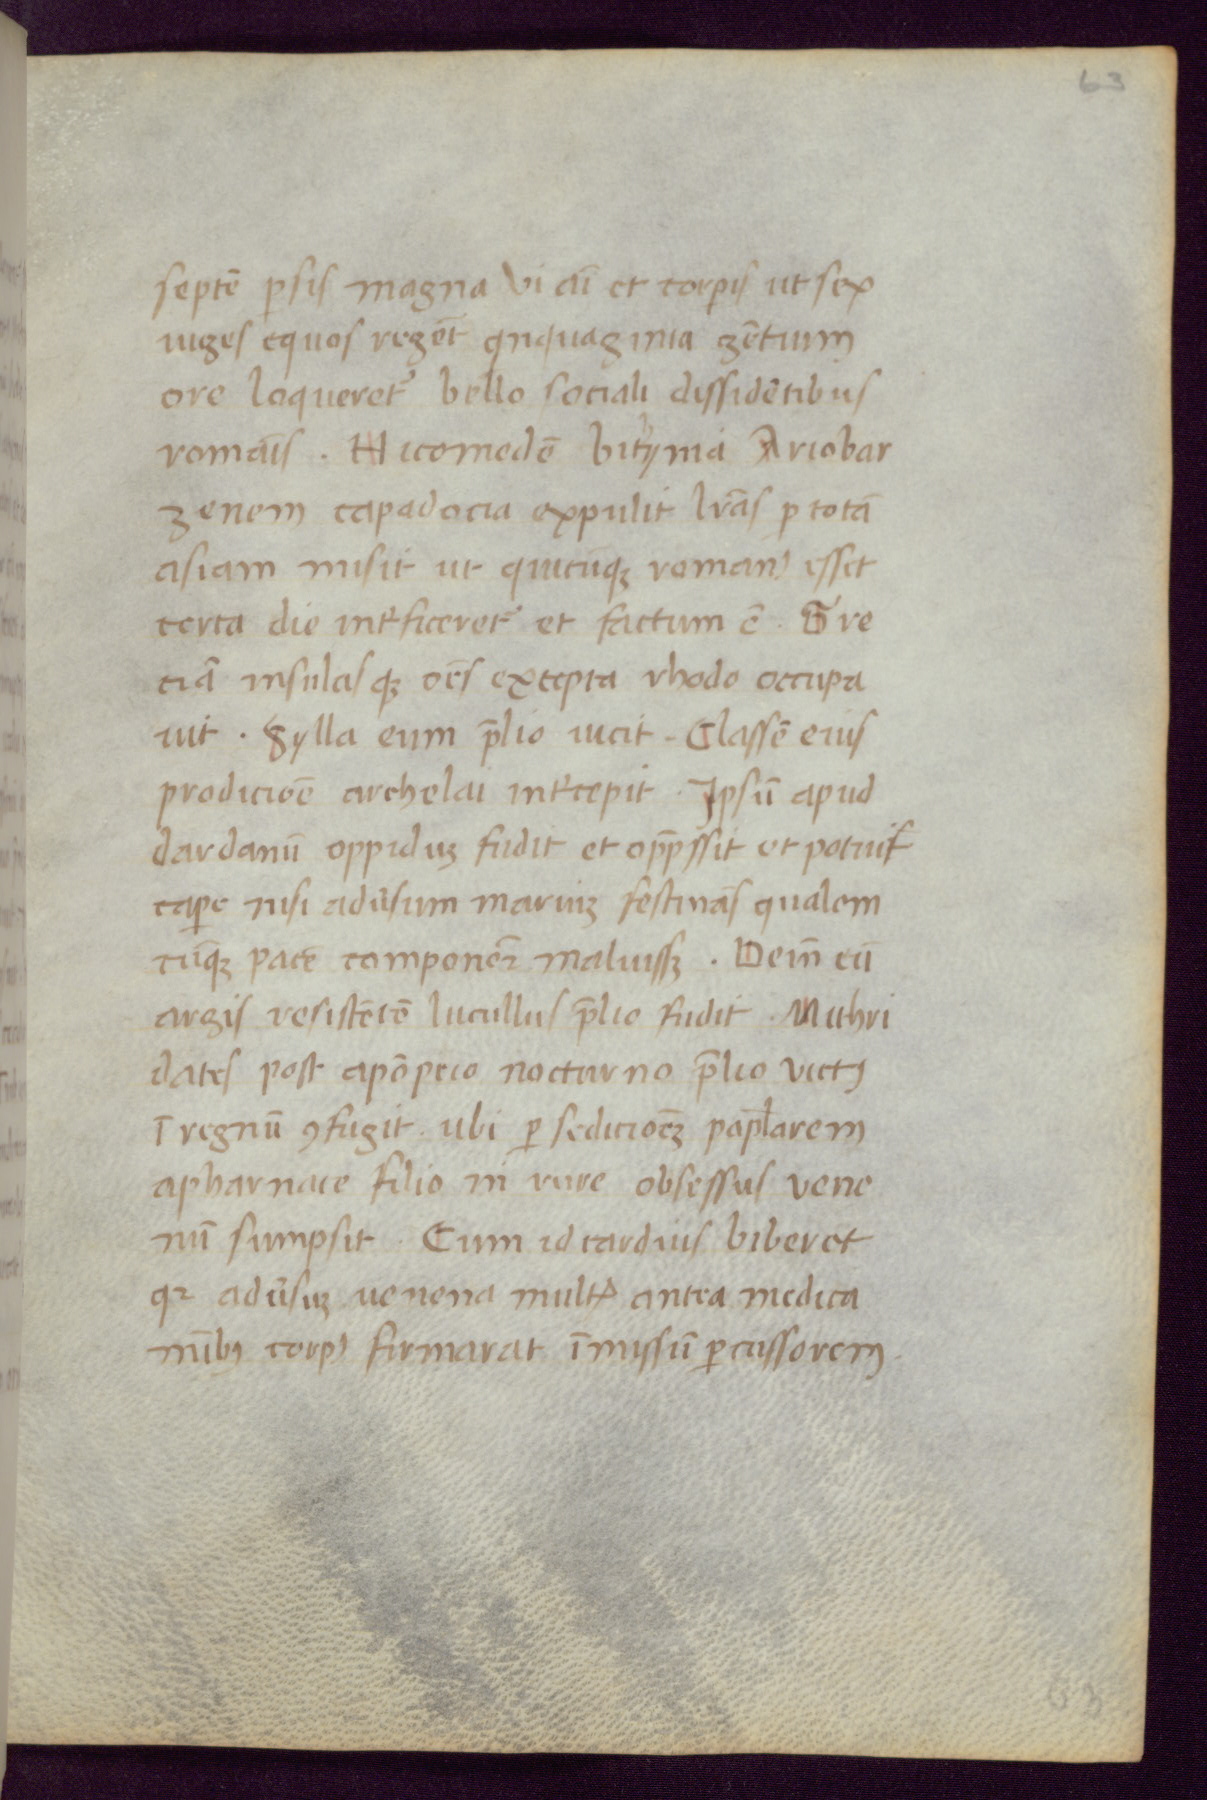 63
septē psis magna vi ai̅ et corpis ut sex
iuges equos regēt qnquaginta gētium
ore loqueret᷑ bello sociali dissidētibus
romāis . Nicomedē bithynia Ariobar
zenem capadocia expulit lr̄as p totā
asiam misit ut quicūqꝫ romanꝰ esset
certa die int̄ficeret᷑ et factum ē . Gre
ciā insulasqꝫ oēs excepta rhodo occupa
uit . Sylla eum p̄lio uicit . Classē eius
prodicioē archelai int̄cepit . Ipsū apud
dardanū oppiduꝫ fudit et opp̄ssit et potuit
cape nisi adūsum mariuꝫ festināš qualem
cūqꝫ pacē componeꝛ̄ maluissꝫ . Dein̄ cū
argis resistētē lucullus p̄lio fudit . Mithri
dates post apōpeio nocturno p̄lio victꝰ
ī regnū ꝯfugit . ubi ꝑ sedicioēꝫ pop̄larem
apharnace filio in rure obsessus vene
nū sumpsit . Cum id tardius biberet
qꝛ adūsuꝫ uenena multꝭ antea medica
mībꝰ corpꝰ firmarat īmissū ꝑcussorem
63